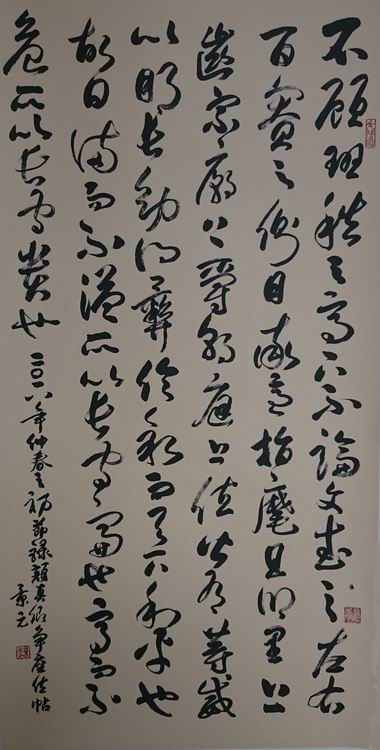 不顧班秩之高下不論文武之左右
百寮之側目率意指麾且鄉里上
齒宗廟上爵朝廷上位皆有等威
以明長幼故得彝倫叙而天下和平也
故曰滿而不溢所以長守富也高而不
危所以長守貴也
二〇一八年仲春之初節錄顏真卿爭座位帖
景元